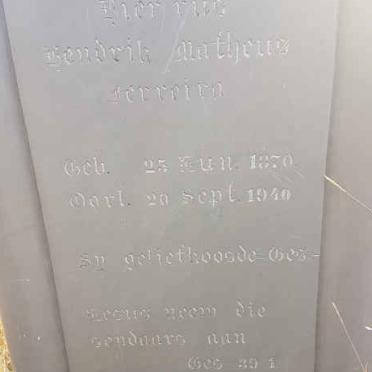 Hier rus
Hendrik Matheus
Ferreira
Geb. 25 Jun. 1870.
Oorl. 20 Sept. 1940
Sy geliefkoosde Ges-
Jesus neem die
sondaars aan
Ges 39 1